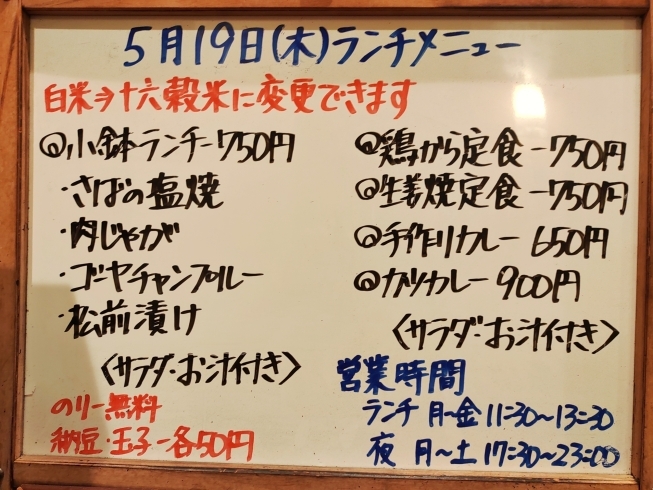 5月19日(木)ランチメニュー
白米→十六穀米に変更できます
◎小鉢ランチー750円
・さばの塩焼
・肉じゃが
・ゴーヤチャンプルー
・松前漬け
〈サラダ・お汁付き〉
のりー無料
納豆・玉子ー各50円
◎鶏から定食ー750円
◎生姜焼定食ー750円
◎手作りカレー 650円
◎カツカレー 900円
〈サラダ・お汁付き〉
営業時間
ランチ 月〜金 11:30〜13:30
夜 月〜土 17:30〜23:00